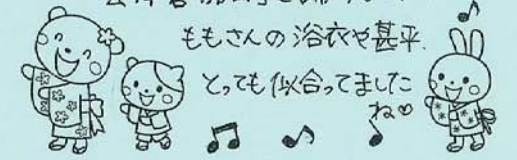 ももさんの浴衣や甚平、
とっても似合ってました
ね♡